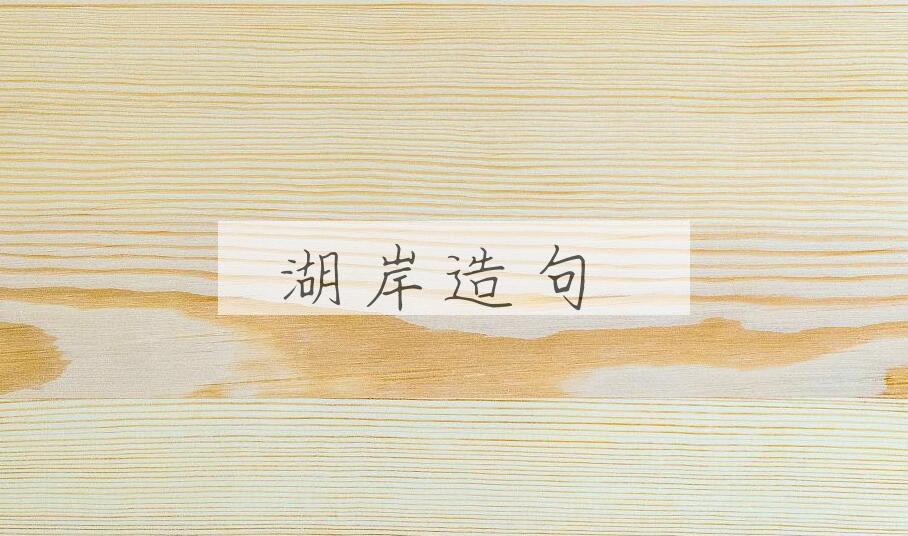 湖岸造句